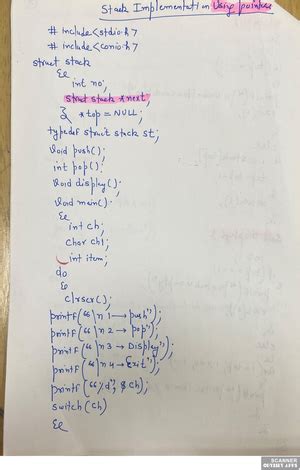 Stack Implementation Using pointers
# include<stdio.h>
# include<conio.h>
struct stack
{
int no;
struct stack *next
} *top = NULL;
typedef struct stack st;
void push();
int pop();
void display();
void main()
{
int ch;
char ch1;
int item;
do
{
clrscr();
printf("\n 1 → push");
printf("\n 2 → pop");
printf("\n 3 → Display");
printf("\n 4 → Exit");
printf("%d", &ch);
switch(ch)
{
SCANNER